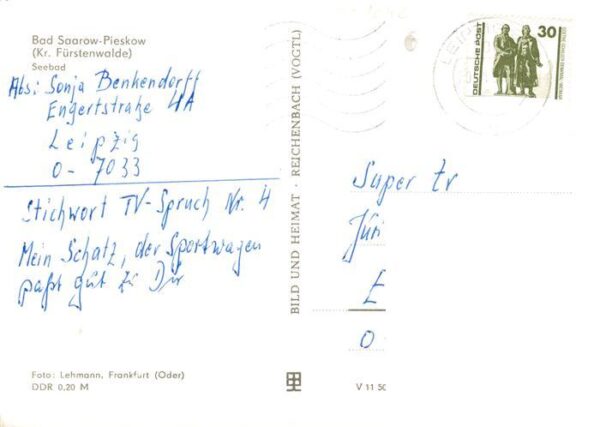 Bad Saarow-Pieskow
(Kr. Fürstenwalde)
Seebad
Abs: Sonja Benkendorff
Engertstraße 4A
Leipzig
O- 7033
Stichwort TV-Spruch Nr. 4
Mein Schatz, der Sportwagen
paßt gut zu Dir
Foto: Lehmann, Frankfurt (Oder)
DDR 0,20 M
BILD UND HEIMAT · REICHENBACH (VOGTL)
DEUTSCHE POST
30
Super tv
E
O
V 11 50